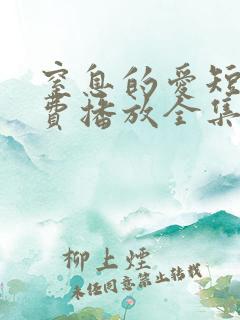 窒息的爱短
费播放全集
柳上煙
未经同意禁止转载